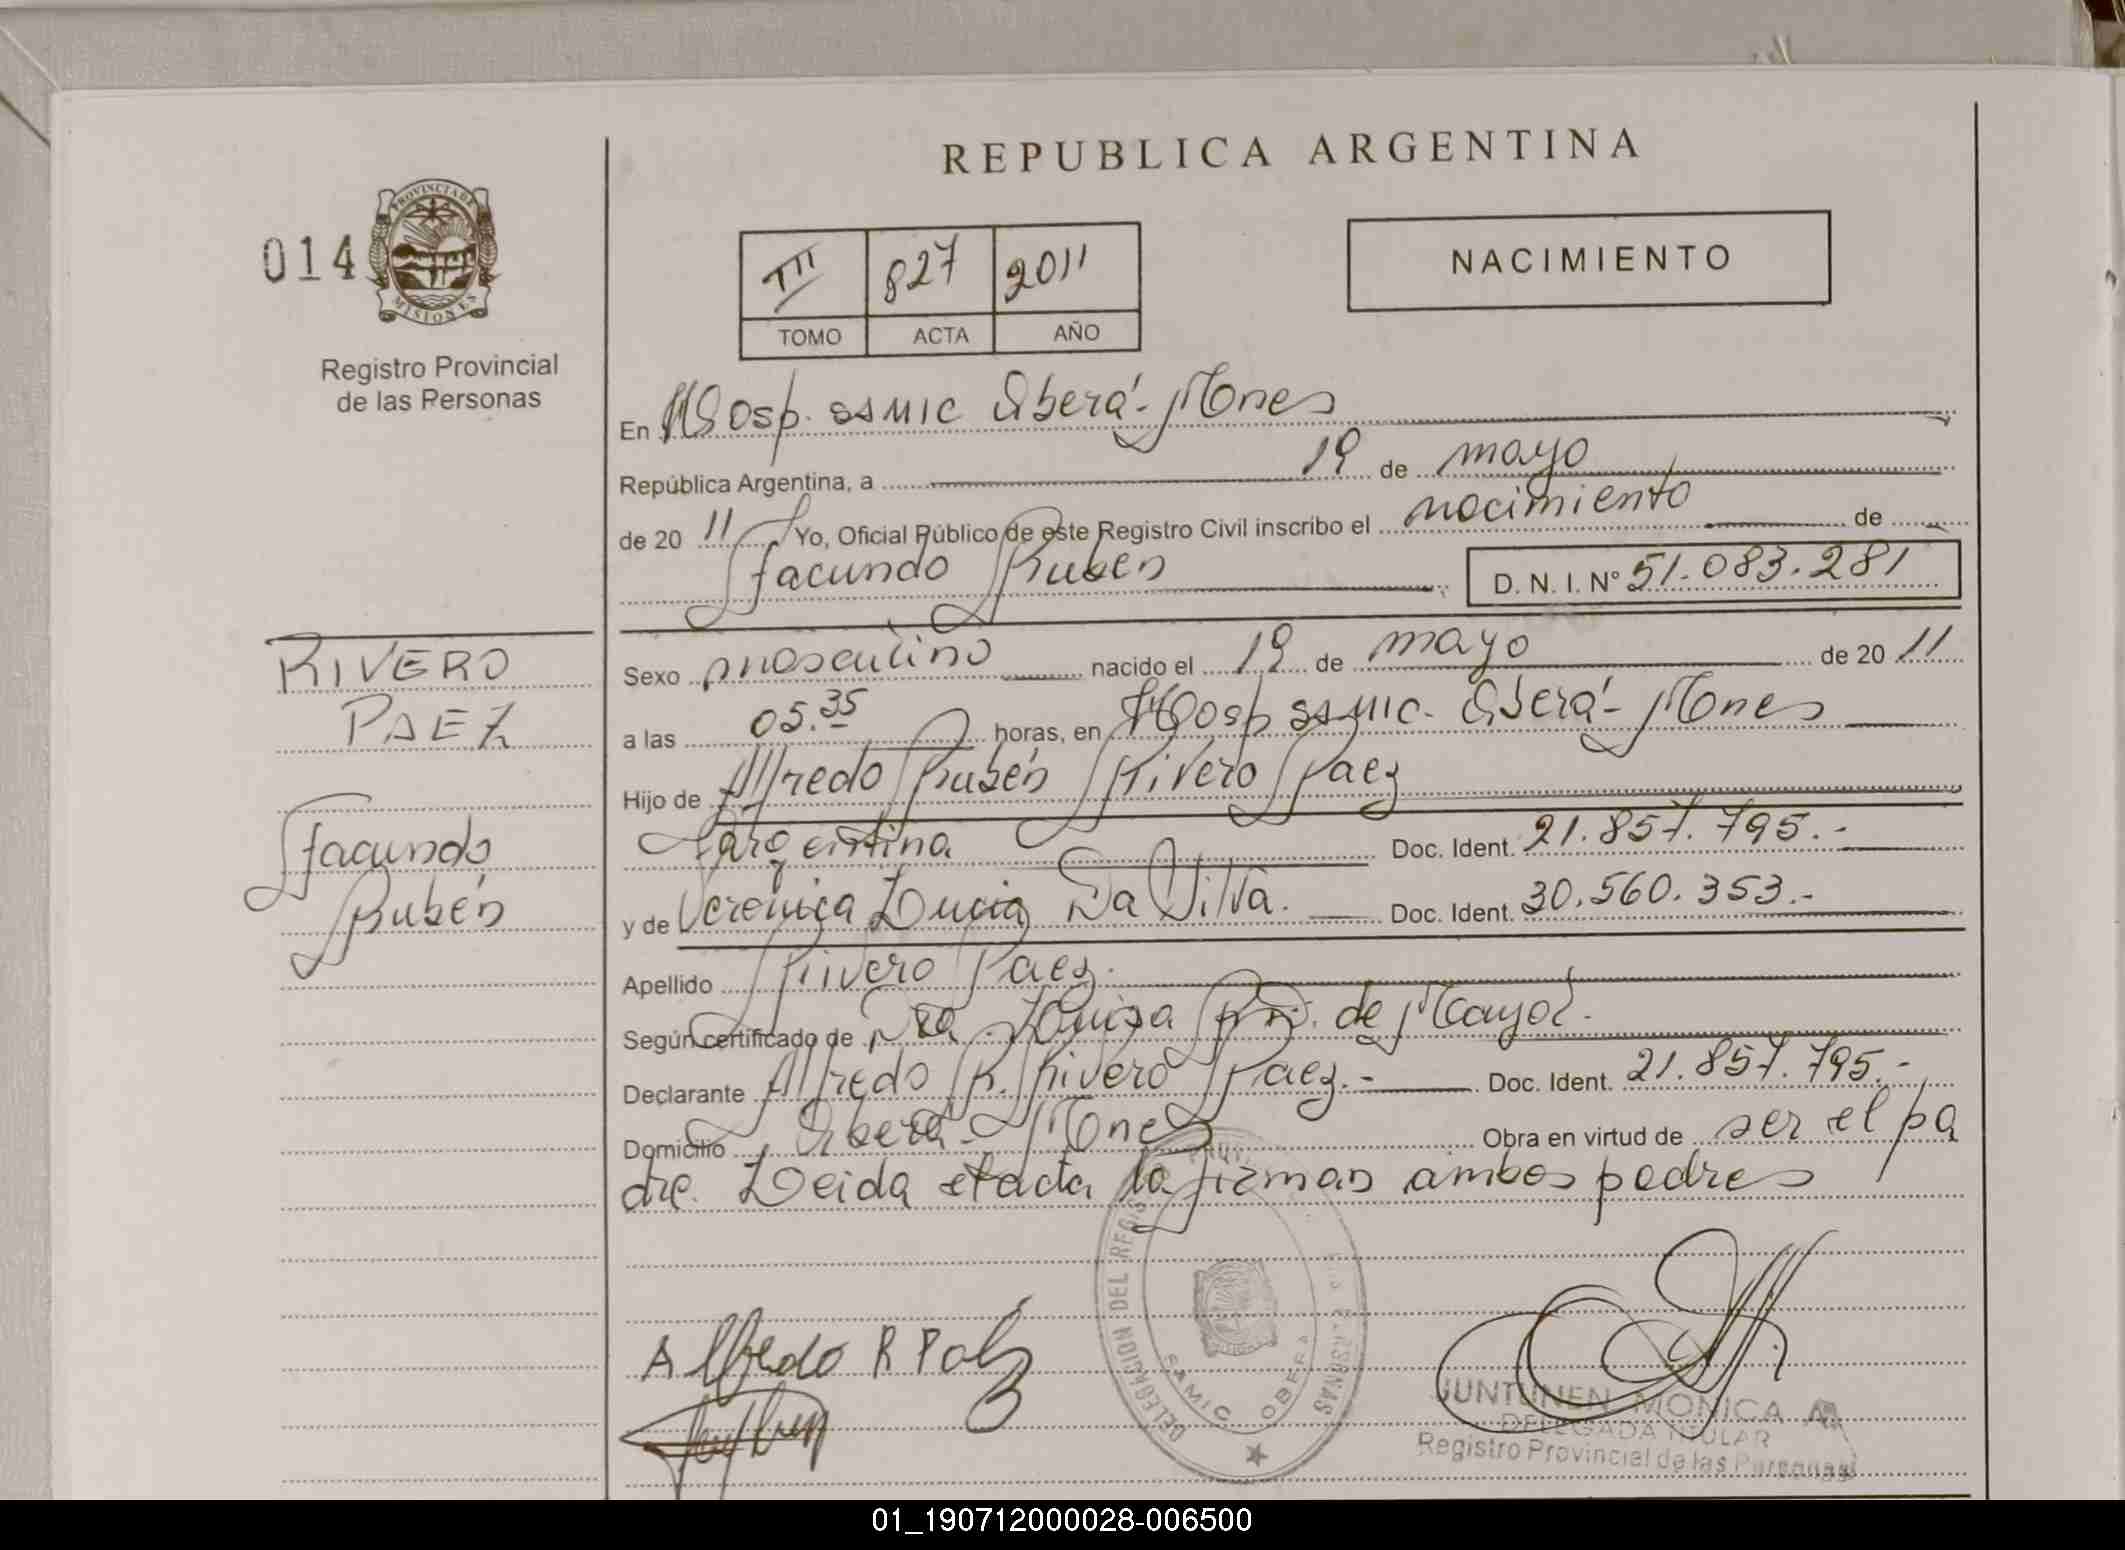 REPUBLICA ARGENTINA
014
PROVINCIA DE
MISIONES
Registro Provincial
de las Personas
III 827 2011
TOMO ACTA AÑO
NACIMIENTO
En Hosp. SAMIC Oberá - Mnes
República Argentina, a 19 de mayo
de 20 11 Yo, Oficial Público de este Registro Civil inscribo el nacimiento de
Facundo Rubén D. N. I. N° 51.083.281
RIVERO
PAEZ
Facundo
Rubén
Sexo masculino nacido el 19 de mayo de 20 11
a las 05.35 horas, en Hosp SAMIC. Oberá - Mnes
Hijo de Alfredo Rubén Rivero Paez
Argentina Doc. Ident. 21.857.795.-
y de Verónica Lucia Da Silva. Doc. Ident. 30.560.353.-
Apellido Rivero Paez.
Según certificado de Dra. de Mayol.
Declarante Alfredo R. Rivero Paez.- Doc. Ident. 21.857.795.-
Domicilio Oberá - Mnes Obra en virtud de ser el pa
dre. Leida el acta la firman ambos padres
Alfredo R Paez
DELEGACION DEL REGISTRO
PERSONAS
SAMIC OBERA
JUNTUNEN MONICA A.
DELEGADA TITULAR
Registro Provincial de las Personas
01_190712000028-006500